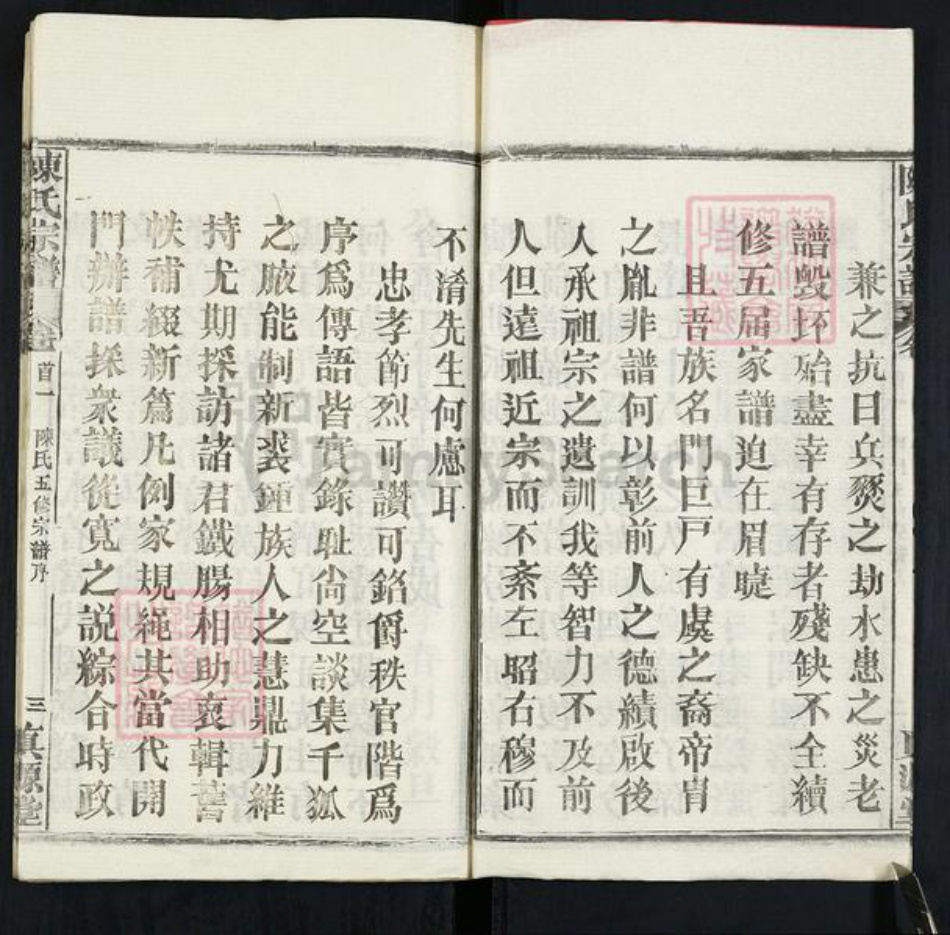 兼之抗日兵燹之劫水患之災老
譜毀坏殆盡幸有存者殘缺不全續
修五届家譜迫在眉睫
且吾族名門巨戸有虞之裔帝胄
之胤非譜何以彰前人之德績啟後
人承祖宗之遺訓我等智力不及前
人但遠祖近宗而不紊左昭右穆而
不淆先生何慮耳
忠孝節烈可讚可銘爵秩官階爲
序爲傳語皆實錄耻尙空談集千狐
之腋能制新裘鍾族人之慧鼎力維
持尤期採訪諸君鐵腸相助裒輯舊
帙補綴新篇凡例家規繩其當代開
門辦譜採衆議從寬之説綜合時政
陳氏宗譜
首一
陳氏五修宗譜序
三
真源堂